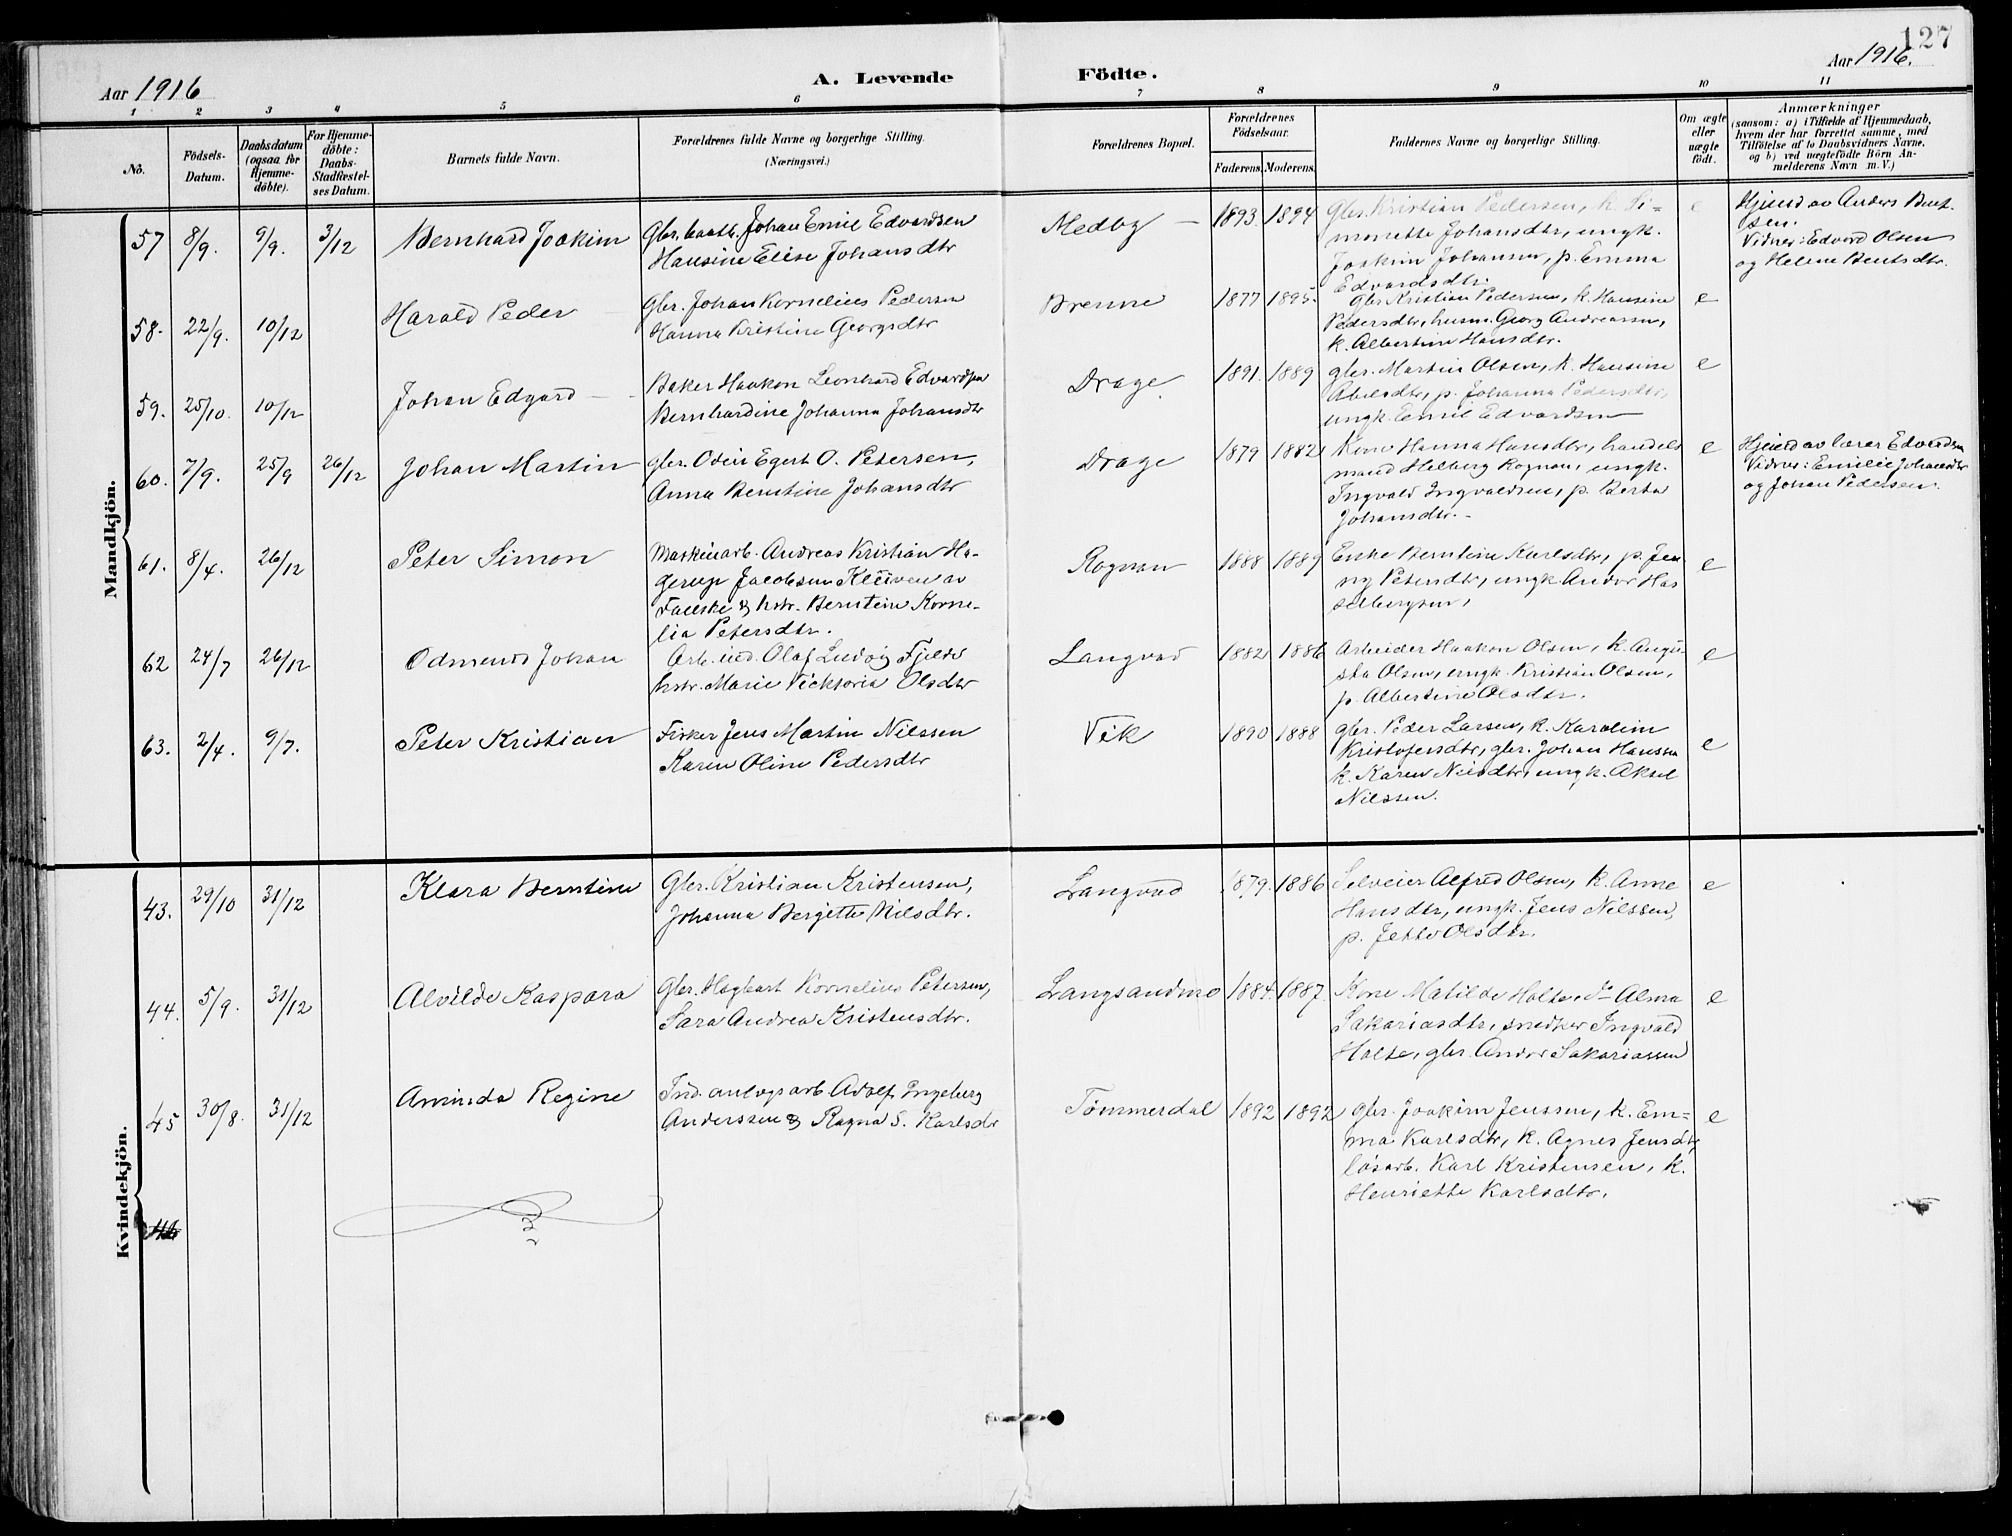 127
Aar 1916
A. Levende Födte.
Aar 1916.
1 2 3 4 5 6 7 8 9 10 11
No.
Födsels-Datum.
Daabsdatum (ogsaa for Hjemme-döbte).
For Hjemme-döbte: Daabs-Stadfæstel-ses Datum.
Barnets fulde Navn.
Forældrenes fulde Navne og borgerlige Stilling.
(Næringsvei.)
Forældrenes Bopæl.
Forældrenes Födselsaar.
Faderens. Moderens.
Faddernes Navne og borgerlige Stilling.
Om ægte eller uægte födt.
Anmærkninger
(saasom: a) i Tilfælde af Hjemmedaab,
hvem der har forrettet samme, med
Tilföielse af to Daabsvidners Navne.
og b) ved uægtefödte Börn An-
melderens Navn m.V.)
Mandkjön.
57 8/9. 9/9. 3/12 Bernhard Joakim
Gbr. baatb. Johan Emil Edvardsen
Hansine Elise Johansdtr
Medby - 1893. 1894
Gbr. Kristian Pedersen, k. Si-
monette Johansdtr, ungk.
Joakim Johansen, p. Emma
Edvardsdtr.
e
Hjemd av Anders Bent-
sen.
Vidner: Edvard Olsen
og Helene Bentsdtr.
58. 22/9. 10/12 Harald Peder
Gbr. Johan Kornelius Pedersen
Hanna Kristine Georgsdtr
Brenne 1877 1895.
Gbr Kristian Pedersen, k. Hansine
Pedersdtr, husm. Georg Andreassen,
k. Albertine Hansdtr.
e
59. 25/10. 10/12 Johan Edgard
Baker Haakon Leonhard Edvardsen
Bernhardine Johanna Johansdtr
Drage 1891. 1889
gbr. Martin Olsen, k. Hansine
Abelsdtr, p. Johanna Pedersdtr,
ungk. Emil Edvardsen
e
60. 7/9. 25/9 26/12 Johan Martin
gbr. Odin Egert O. Petersen,
Anna Berntine Johansdtr
Drage 1879 1882
Kone Hanna Hansdtr, handels
mand Helberg Rognan, ungk.
Ingvald Ingvaldsen, p. Berta
Johansdtr.
e
Hjemd av lærer Edvardsen
Vidner: Emilie Johansdtr
og Johan Pedersen.
61. 8/4. 26/12 Peter Simon
Maskinarb. Andreas Kristian Ha-
gerup Jacobsen Kleiven av
Fauske & hstr. Berntine Korne-
lia Petersdtr.
Rognan 1888 1889
Enke Berntine Karlsdtr, p. Jen
ny Petersdtr, ungk Andor Has
selbergsen,
e
62 24/7 26/12 Odmund Johan
Arb. ind. Olaf Ludvig Fjelde
hstr. Marie Vicktoria Olsdtr
Langvad 1882 1886
Arbeider Haakon Olsen, k. Augu-
sta Olsen, ungk. Kristian Olsen,
p. Albertine Olsdtr.
e
63. 2/4. 9/7. Peter Kristian
Fisker Jens Martin Nilssen
Karen Oline Pedersdtr
Vik 1890 1888
gbr. Peder Larsen, k. Karolin
Kristofersdtr, gbr. Johan Hanssen
k. Karen Nilsdtr, ungk. Aksel
Nilssen.
e
Kvindekjön.
43. 29/10 31/12 Klara Berntine
Gbr. Kristian Kristensen,
Johanna Bergitte Nilsdtr.
Langvad 1879. 1886
Selveier Alfred Olsen, k. Anne
Hansdtr, ungk. Jens Nilssen,
p. Jette Olsdtr.
e
44. 5/9. 31/12 Alvilde Kaspara
Gbr. Hagbart Kornelius Petersen,
Sara Andrea Kristensdtr.
Langsandmo 1884. 1887.
Kone Matilde Holte, do Alma
Sakariasdtr, snedker Ingvald
Holte, gbr. Andor Sakariassen
e
45 30/8. 31/12 Aminda Regine
Ind. anlegsarb. Adolf Ingeberg
Anderssen & Ragna S. Karlsdtr
Tømmerdal 1892 1892
gbr. Joakim Jenssen, k. Em-
ma Karlsdtr, k. Agnes Jensdtr,
løsarb. Karl Kristensen, k.
Henriette Karlsdtr.
e